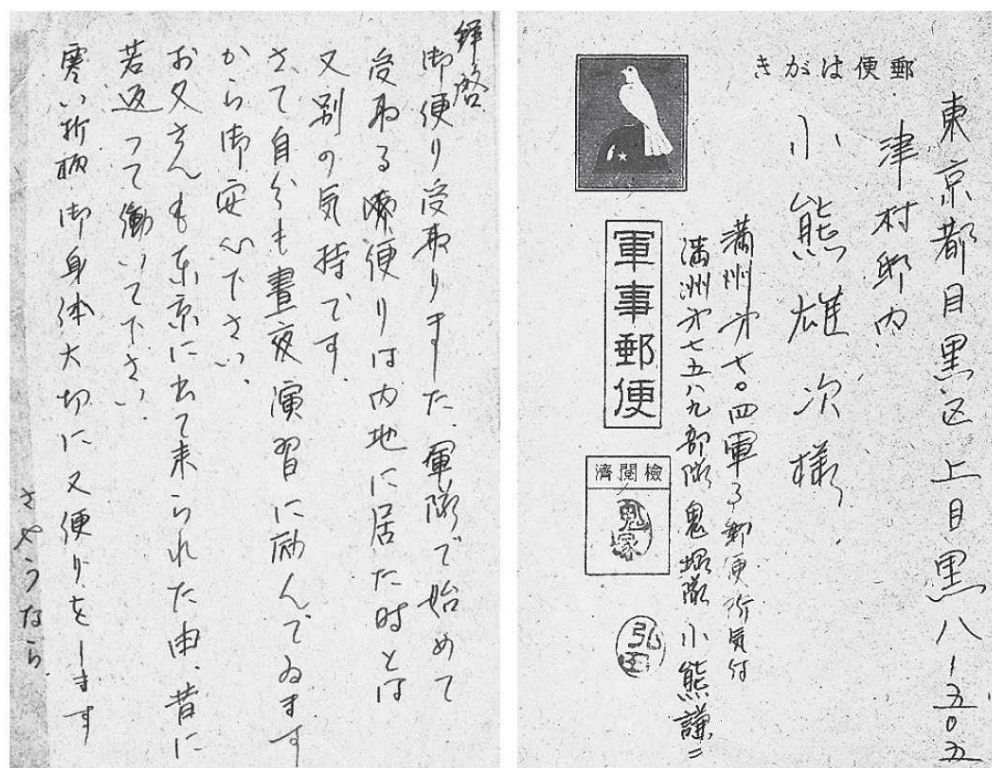 拝啓
御便り受取りました、軍隊で始めて
受取る御便りは内地に居た時とは
又別の気持です。
さて自分も晝夜演習に励んでゐます
から御安心下さい、
お父さんも東京に出て来られた由、昔に
若返つて働いて下さい、
寒い折柄御身体大切に又便りをします
さやうなら
郵便はがき
東京都目黒区上目黒八ノ五〇五
津村邸内
小熊雄次様
満州第七〇四軍事郵便所気付
満洲第七五八九部隊鬼塚隊小熊謙二
軍事郵便
檢閲濟
弘田